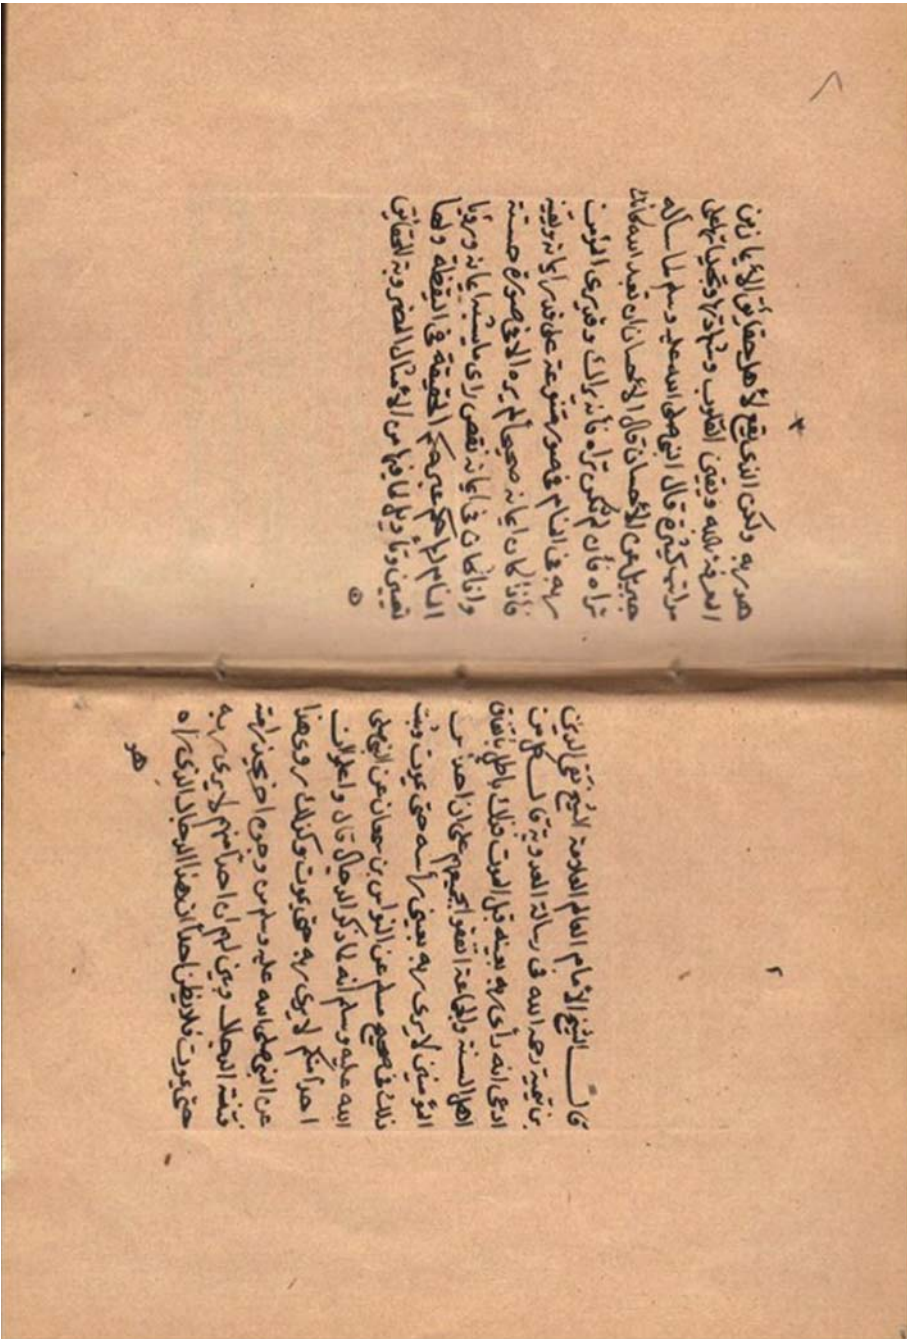 ٢
قال الشيخ الأمام العالم العلامة الشيخ تقي الدين
بن تيمية رحمه الله في رسالة العدوية قال كل من
ادعى انه رأى ربه بعينه قبل الموت فذلك باطل باتفاق
اهل السنة والجماعة اتفقوا جميعهم على ان احدا من
المؤمنين لا يرى ربه بعيني رأسه حتى يموت وثبت
ذلك في صحيح مسلم عن النواس بن سمعان عن النبي صلى
الله عليه وسلم أنه لما ذكر الدجال قال واعلموا ان
احدا منكم لا يرى ربه حتى يموت وكذلك روى هذا
عن النبي صلى الله عليه وسلم من وجوه اخر يحذر امته
فتنة الدجال وبين لهم ان احدا منهم لا يرى ربه
حتى يموت فلا يظن احدا أن هذا الدجال الذي راه
هو
٣
هو ربه ولكن الذي يقع لأهل حقائق الأيمان من
المعرفة بالله ويقين القلوب ومشاهدتها وتجلياتها على
مراتب كثيرة قال النبي صلى الله عليه وسلم لما سأله
جبريل عن الأحسان قال الأحسان ان تعبد الله كأنك
تراه فأن لم تكن تراه فأنه يراك وقد يرى المؤمن
ربه في المنام في صور متنوعة على قدر ايمانه ويقينه
فأذا كان ايمانه صحيحا لم يره الا في صورة حسنة
واذا كان في ايمانه نقص راى ما يشبه ايمانه ورؤيا
المنام لها حكم غير حكم الحقيقة في اليقظة ولها
تعبير وتاويل لما فيها من الأمثال المضروبة للحقائق